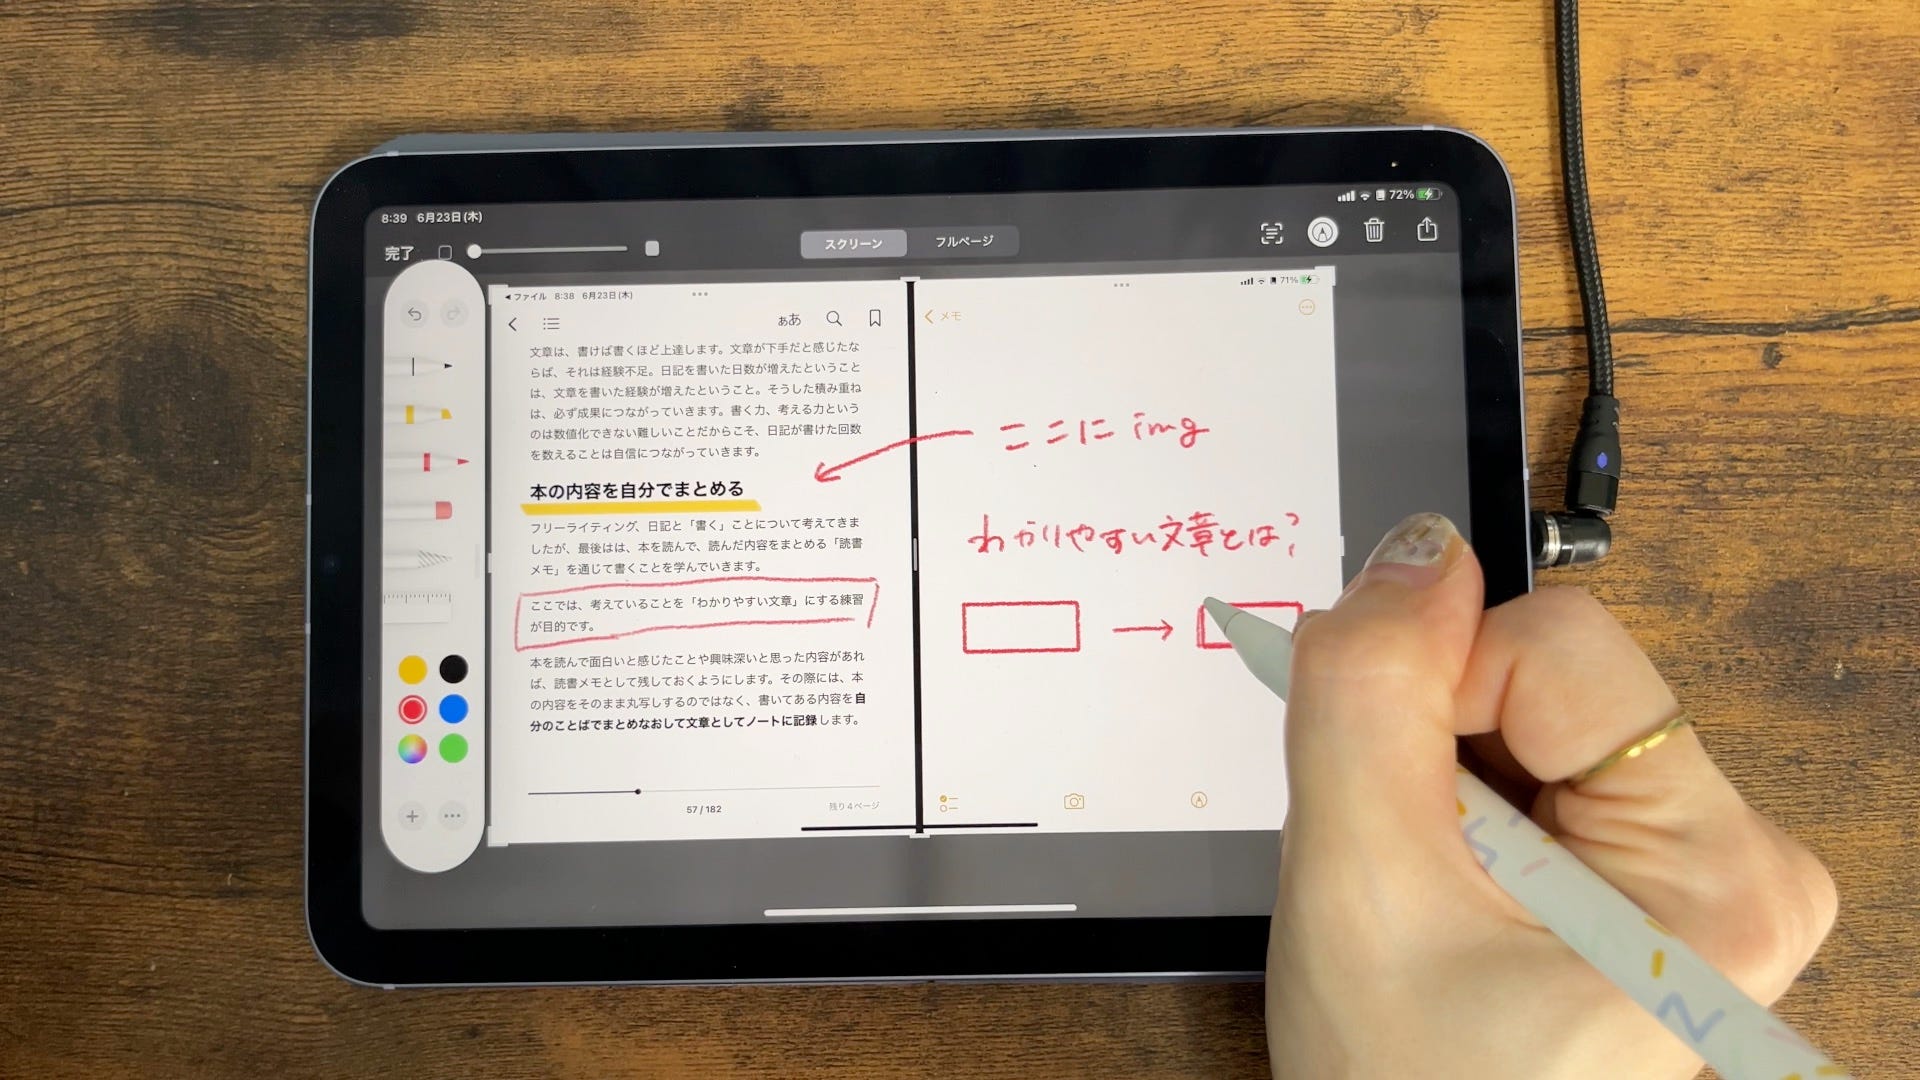 8:39 6月23日(木)
72%
完了
スクリーン
フルページ
◀ファイル 8:38 6月23日(木)
71%
ぁあ
メモ
文章は、書けば書くほど上達します。文章が下手だと感じたな
らば、それは経験不足。日記を書いた日数が増えたということ
は、文章を書いた経験が増えたということ。そうした積み重ね
は、必ず成果につながっていきます。書く力、考える力という
のは数値化できない難しいことだからこそ、日記が書けた回数
を数えることは自信につながっていきます。
本の内容を自分でまとめる
フリーライティング、日記と「書く」ことについて考えてきま
したが、最後はは、本を読んで、読んだ内容をまとめる「読書
メモ」を通じて書くことを学んでいきます。
ここでは、考えていることを「わかりやすい文章」にする練習
が目的です。
本を読んで面白いと感じたことや興味深いと思った内容があれ
ば、読書メモとして残しておくようにします。その際には、本
の内容をそのまま丸写しするのではなく、書いてある内容を自
分のことばでまとめなおして文章としてノートに記録します。
57 / 182
残り4ページ
ここに img
わかりやすい文章とは?